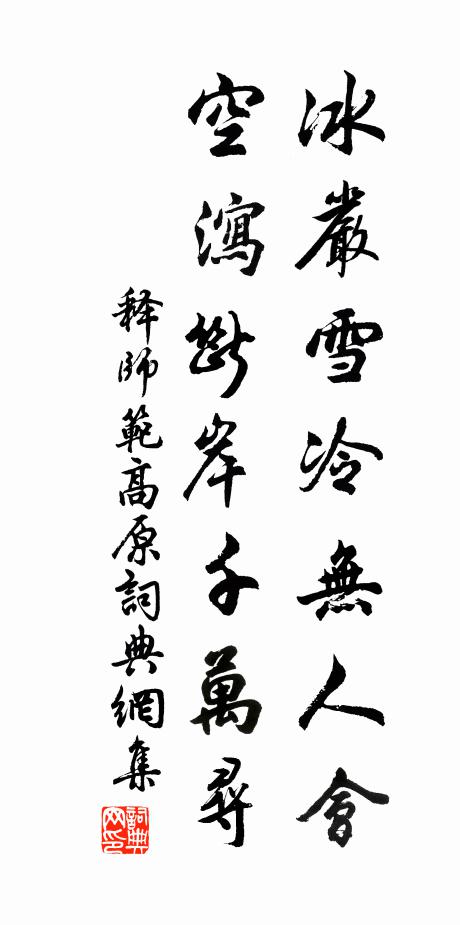 冰嚴雪冷無人會
空瀉斷岸千萬尋
释師範高原詞典網集
詞典网印